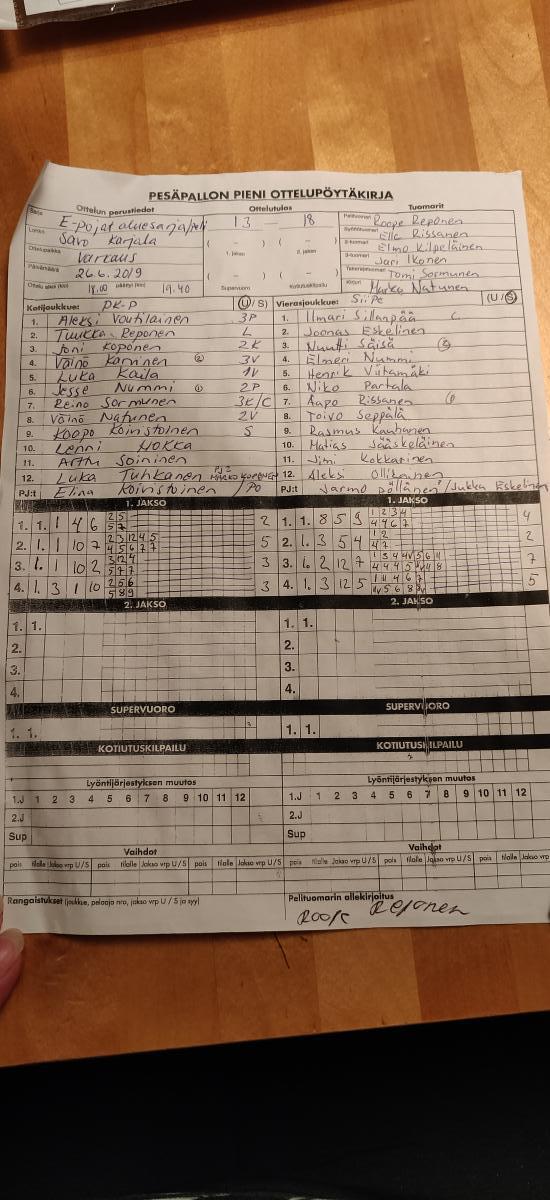 PESÄPALLON PIENI OTTELUPÖYTÄKIRJA
Ottelun perustiedot Ottelutulos Tuomarit
Sarja E-pojat aluesarja/peli 13 – 18 Pelituomari Roope Reponen
Lohko Savo Karjala ( – ) ( – ) Syöttötuomari Elle Rissanen
1. jakso 2. jakso 2-tuomari Elmo Kilpeläinen
Ottelupaikka Varkaus 3-tuomari Jari Ikonen
Päivämäärä 26.6.2019 ( – ) ( – ) Takarajatuomari Tomi Sormunen
Ottelu alkoi (klo) 18.00 päättyi (klo) 19.40 Supervuoro Kotiutuskilpailu Kirjuri Marko Natunen
Kotijoukkue: PK-P (U/S) Vierasjoukkue: SiiPe (U/S)
1. Aleksi Voutilainen 3P 1. Ilmari Sillanpää C
2. Tuukka Reponen L 2. Joonas Eskelinen
3. Joni Koponen 2K 3. Nuutti Säisä 2
4. Väinö Karvinen 2 3V 4. Elmeri Nummi
5. Luka Kaila 1V 5. Henrik Viitamäki
6. Jesse Nummi 1 2P 6. Niko Partala
7. Reino Sormunen 3K/C 7. Aapo Rissanen 1
8. Väinö Natunen 2V 8. Toivo Seppälä
9. Koopo Koivistoinen S 9. Rasmus Kauhanen
10. Lenni Hokka 10. Matias Jääskeläinen
11. Arttu Soininen 11. Jimi Kokkarinen
12. Luka Tuhkanen PJ2 Marko Koponen 12. Aleksi Ollikainen
PJ:t Elina Koivistoinen / Po PJ:t Jarmo Pöllänen / Jukka Eskelinen
1. JAKSO 1. JAKSO
1. 1. 1 4 6 2 5 2 1. 1. 8 5 9 1 2 3 4 4
5 7 4 4 6 7
2. 1. 1 10 7 2 3 1 2 4 5 5 2. 1. 3 5 4 1 2 2
4 5 6 7 7 4 7
3. 1. 1 10 2 3 12 4 3 3. 1. 2 12 7 7
5 7 7
4. 1. 3 1 10 2 5 6 3 4. 1. 3 12 5 5
5 8 9
2. JAKSO 2. JAKSO
1. 1. 1. 1.
2. 2.
3. 3.
4. 4.
SUPERVUORO SUPERVUORO
1. 1. 1. 1.
KOTIUTUSKILPAILU KOTIUTUSKILPAILU
Lyöntijärjestyksen muutos Lyöntijärjestyksen muutos
1.J 1 2 3 4 5 6 7 8 9 10 11 12 1.J 1 2 3 4 5 6 7 8 9 10 11 12
2.J 2.J
Sup Sup
Vaihdot Vaihdot
pois tilalle Jakso vrp U/S pois tilalle Jakso vrp U/S pois tilalle Jakso vrp U/S pois tilalle Jakso vrp U/S pois tilalle Jakso vrp U/S pois tilalle Jakso vrp U/S
Rangaistukset (joukkue, pelaaja nro, jakso vrp U / S ja syy) Pelituomarin allekirjoitus
Roope Reponen